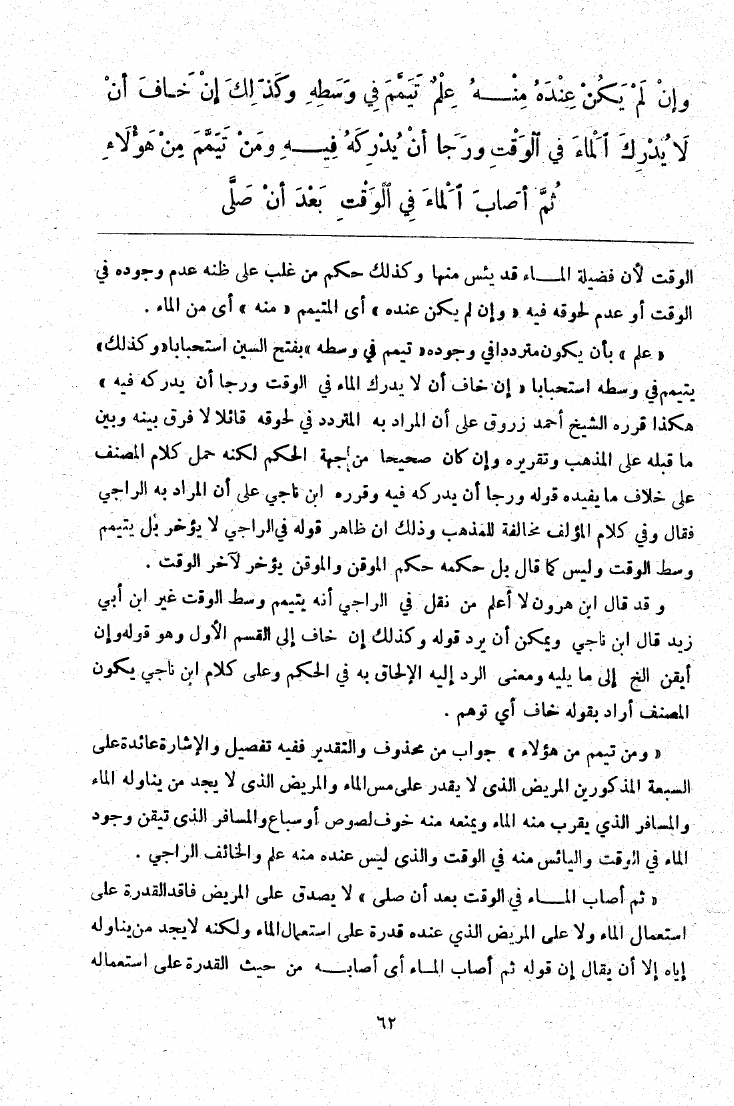 وَإِنْ لَمْ يَكُنْ عِنْدَهُ مِنْـــهُ عِلْمٌ تَيَمَّمَ فِي وَسَطِهِ وَكَذَلِكَ إِنْ خَـافَ أَنْ
لَا يُدْرِكَ ٱلْمَاءَ فِي ٱلْوَقْتِ وَرَجَا أَنْ يُدْرِكَهُ فِيـــهِ وَمَنْ تَيَمَّمَ مِنْ هَؤُلَاءِ
ثُمَّ أَصَابَ ٱلْمَاءَ فِي ٱلْوَقْتِ بَعْدَ أَنْ صَلَّى
الوقت لأن فضيلة المـــاء قد يئس منها وكذلك حكم من غلب على ظنه عدم وجوده في
الوقت أو عدم لحوقه فيه « وإن لم يكن عنده » أى المتيمم « منه » أى من الماء .
« علم » بأن يكون مترددا في وجوده « تيمم في وسطه » بفتح السين استحبابا « وكذلك »
يتيمم في وسطه استحبابا « إن خاف أن لا يدرك الماء في الوقت ورجا أن يدركه فيه »
هكذا قرره الشيخ أحمد زروق على أن المراد به المتردد في لحوقه قائلا لا فرق بينه وبين
ما قبله على المذهب وتقريره وإن كان صحيحا من جهة الحكم لكنه حمل كلام المصنف
على خلاف ما يفيده قوله ورجا أن يدركه فيه وقرره ابن ناجي على أن المراد به الراجي
فقال وفي كلام المؤلف مخالفة للمذهب وذلك ان ظاهر قوله في الراجي لا يؤخر بل يتيمم
وسط الوقت وليس كما قال بل حكمه حكم الموقن والموقن يؤخر لآخر الوقت .
و قد قال ابن هرون لا أعلم من نقل في الراجي أنه يتيمم وسط الوقت غير ابن أبي
زيد قال ابن ناجي ويمكن أن يرد قوله وكذلك إن خاف إلى القسم الأول وهو قوله وإن
أيقن الخ إلى ما يليه ومعنى الرد إليه الإلحاق به في الحكم وعلى كلام ابن ناجي يكون
المصنف أراد بقوله خاف أي توهم .
« ومن تيمم من هؤلاء » جواب من محذوف والتقدير ففيه تفصيل والإشارة عائدة على
السبعة المذكورين المريض الذى لا يقدر على مس الماء والمريض الذى لا يجد من يناوله الماء
والمسافر الذي يقرب منه الماء ويمنعه منه خوف لصوص أو سباع والمسافر الذى تيقن وجود
الماء في الوقت واليائس منه في الوقت والذى ليس عنده منه علم والخائف الراجي .
« ثم أصاب المـــاء في الوقت بعد أن صلى » لا يصدق على المريض فاقد القدرة على
استعمال الماء ولا على المريض الذي عنده قدرة على استعمال الماء ولكنه لا يجد من يناوله
إياه إلا أن يقال إن قوله ثم أصاب المـاء أى أصابـــه من حيث القدرة على استعماله
٦٢